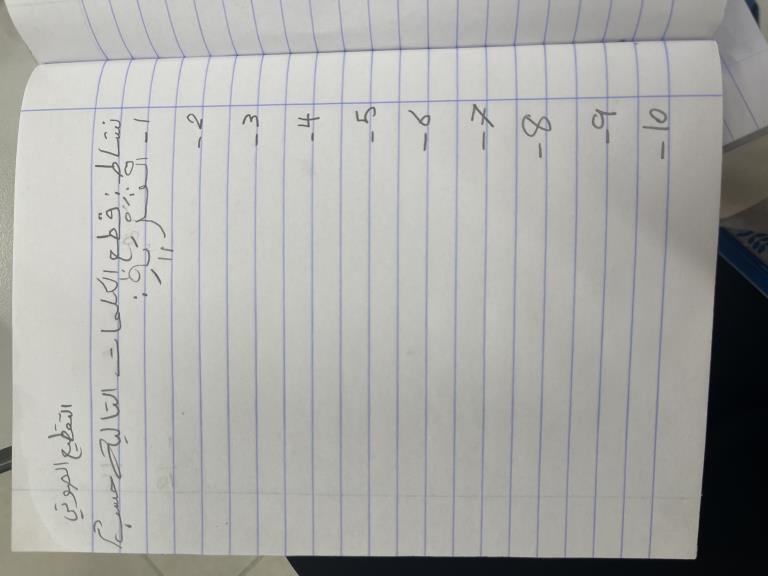 التقطيع الصوتي
نشاط : قطع الكلمات التالية حسب
1-
2-
3-
4-
5-
6-
7-
8-
9-
10-